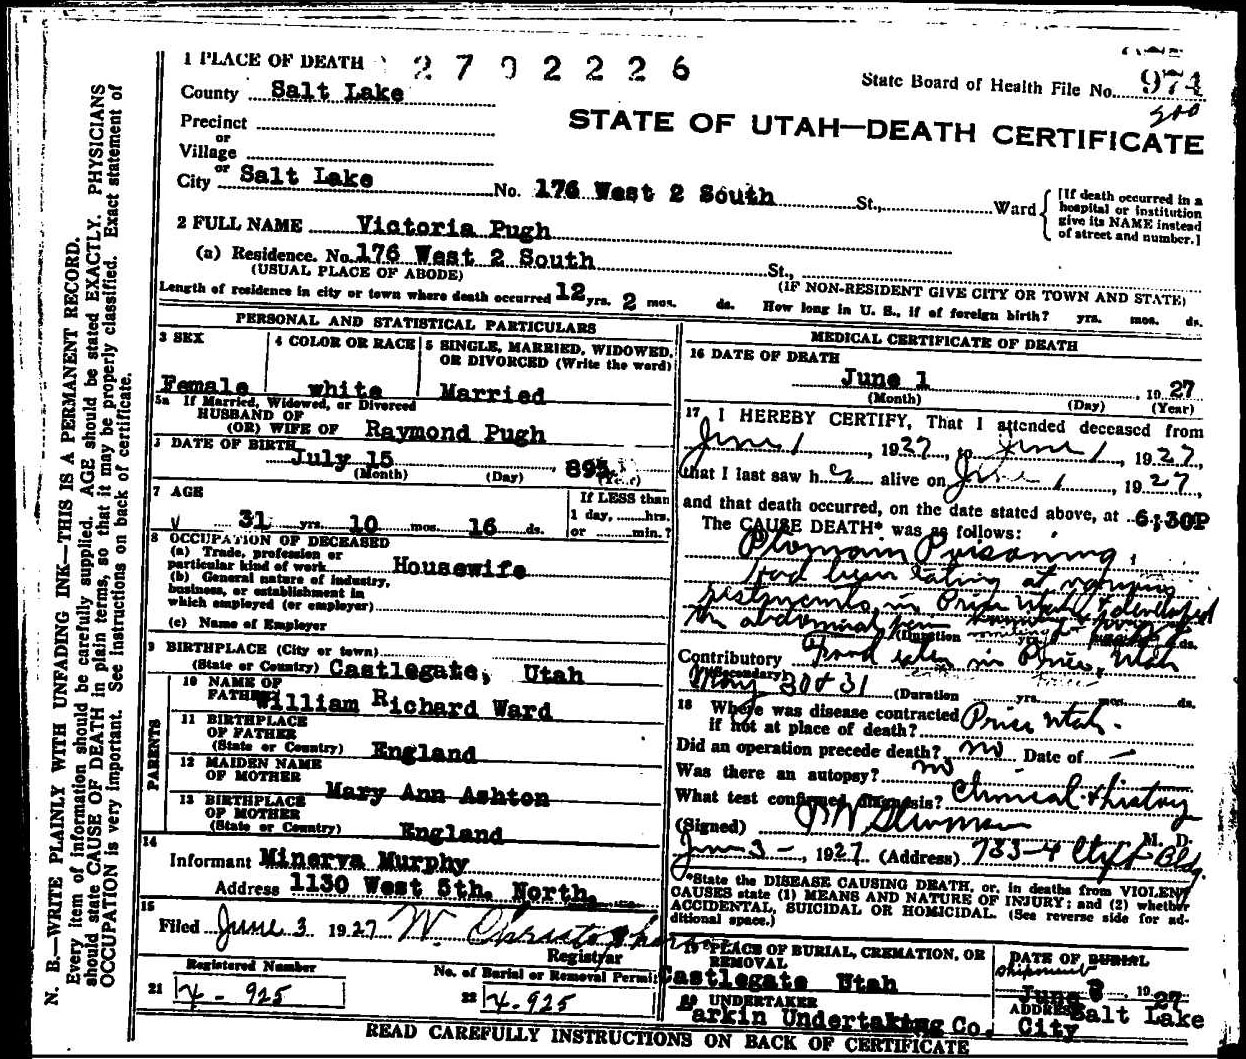 1 PLACE OF DEATH 2702226
State Board of Health File No. 974
County Salt Lake
300
Precinct
STATE OF UTAH—DEATH CERTIFICATE
or
Village
or
City Salt Lake No. 176 West 2 South St., Ward
[If death occurred in a
hospital or institution
give its NAME instead
of street and number.]
2 FULL NAME Victoria Pugh
(a) Residence. No. 176 West 2 South St.,
(USUAL PLACE OF ABODE) (IF NON-RESIDENT GIVE CITY OR TOWN AND STATE)
Length of residence in city or town where death occurred 12 yrs. 2 mos. ds. How long in U. S., if of foreign birth? yrs. mos. ds.
PERSONAL AND STATISTICAL PARTICULARS
3 SEX
Female
4 COLOR OR RACE
white
5 SINGLE, MARRIED, WIDOWED,
OR DIVORCED (Write the word)
Married
5a If Married, Widowed, or Divorced
HUSBAND OF
(OR) WIFE OF Raymond Pugh
DATE OF BIRTH
July 15
(Month) (Day)
7 AGE
31 yrs. 10 mos. 16 ds.
If LESS than
1 day, hrs.
or min.?
8 OCCUPATION OF DECEASED
(a) Trade, profession or
particular kind of work Housewife
(b) General nature of industry,
business, or establishment in
which employed (or employer)
(c) Name of Employer
9 BIRTHPLACE (City or town)
(State or Country) Castlegate, Utah
PARENTS
10 NAME OF
FATHER William Richard Ward
11 BIRTHPLACE
OF FATHER
(State or Country) England
12 MAIDEN NAME
OF MOTHER Mary Ann Ashton
13 BIRTHPLACE
OF MOTHER
(State or Country) England
14
Informant Minerva Murphy
Address 1130 West 5th. North.
15
Filed June 3 1927 W. Christopherson
Registrar
Registered Number
21 4-925
No. of Burial or Removal Permit
22 4-925
MEDICAL CERTIFICATE OF DEATH
16 DATE OF DEATH
June 1, 1927
(Month) (Day) (Year)
17 I HEREBY CERTIFY, That I attended deceased from
June 1, 1927, to June 1, 1927,
that I last saw her alive on June 1, 1927,
and that death occurred, on the date stated above, at 6:30P
The CAUSE DEATH* was as follows:
Ptomain Poisoning
Had been eating at various
in Price Utah & developed
abdominal
(Duration yrs. ds.
Contributory Food eaten in Price, Utah
(Secondary)
May 30 & 31 (Duration yrs. mos. ds.
18 Where was disease contracted
if not at place of death? Price Utah.
Did an operation precede death? no Date of —
Was there an autopsy? no
What test confirmed diagnosis? Clinical & history
(Signed) M. D.
June 3-, 1927 (Address) Bldg.
*State the DISEASE CAUSING DEATH, or, in deaths from VIOLENT
CAUSES state (1) MEANS AND NATURE OF INJURY; and (2) whether
ACCIDENTAL, SUICIDAL OR HOMICIDAL. (See reverse side for ad-
ditional space.)
19 PLACE OF BURIAL, CREMATION, OR
REMOVAL
Castlegate Utah
DATE OF BURIAL
shipment
June 3, 1927
20 UNDERTAKER
Larkin Undertaking Co.
ADDRESS Salt Lake
City
READ CAREFULLY INSTRUCTIONS ON BACK OF CERTIFICATE
N. B.—WRITE PLAINLY WITH UNFADING INK—THIS IS A PERMANENT RECORD.
Every item of information should be carefully supplied. AGE should be stated EXACTLY. PHYSICIANS
should state CAUSE OF DEATH in plain terms, so that it may be properly classified. Exact statement of
OCCUPATION is very important. See instructions on back of certificate.